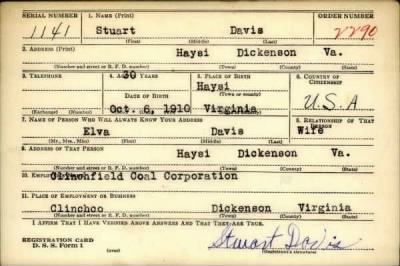 SERIAL NUMBER 1. NAME (Print) ORDER NUMBER
1141 Stuart Davis 2290
(First) (Middle) (Last)
2. ADDRESS (Print)
Haysi Dickenson Va.
(Number and street or R. F. D. number) (Town) (County) (State)
3. TELEPHONE 4. AGE IN YEARS 5. PLACE OF BIRTH 6. COUNTRY OF CITIZENSHIP
30 Haysi
(Town or county)
DATE OF BIRTH U.S.A
Oct. 6, 1910 Virginia
(Exchange) (Number) (Mo.) (Day) (Yr.) (State or country)
7. NAME OF PERSON WHO WILL ALWAYS KNOW YOUR ADDRESS 8. RELATIONSHIP OF THAT PERSON
Elva Davis Wife
(Mr., Mrs., Miss) (First) (Middle) (Last)
9. ADDRESS OF THAT PERSON
Haysi Dickenson Va.
(Number and street or R. F. D. number) (Town) (County) (State)
10. EMPLOYER'S NAME
Clinchfield Coal Corporation
11. PLACE OF EMPLOYMENT OR BUSINESS
Clinchco Dickenson Virginia
(Number and street or R. F. D. number) (Town) (County) (State)
I AFFIRM THAT I HAVE VERIFIED ABOVE ANSWERS AND THAT THEY ARE TRUE.
REGISTRATION CARD
D. S. S. Form 1
Stuart Davis
(Registrant's signature)